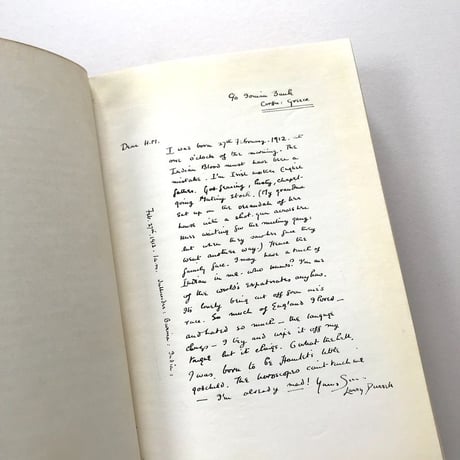 c/o Ionian Bank
Corfu. Greece
Dear H.M.
I was born 27th February. 1912. at
one o'clock of the morning. The
Indian Blood must have been a
mistake. I'm Irish mother English
father. God-fearing, lusty, chapel-
going Mutiny stock. (My grandma
sat up on the verandah of her
house with a shot-gun across her
knees waiting for the mutiny gang;
but when they saw her face they
went another way.) Hence the
family face. I may have a touch of
Indian in me. who knows. I'm one
of the world's expatriates anyhow.
Its lonely being cut off from one's
race. So much of England I loved —
and hated so much — the language
clings — I try and wipe it off my
tongue but it clings. O what the hell.
I was born to be Hamlet's little
godchild. The horoscopes can't touch me
— I'm already mad! Yours Sin—
Larry Durrell
Feb. 27th, 1912. 1 a.m. Jullundur: Burma: India.